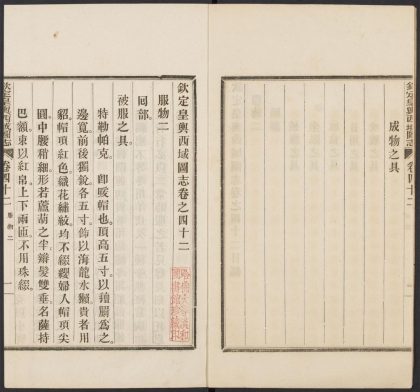 欽定皇輿西域圖志 卷四十二
成物之具
欽定皇輿西域圖志卷之四十二
服物二
回部
被服之具
特勒帕克。即暖帽也。頂高五寸。以氊罽為之。
邊寬。前後獨銳各五寸。飾以海龍水獺。貴者用
貂。帽頂紅色織花繡紋。均不綴纓。婦人帽頂尖
圓。中腰稍細。形若蘆葫之半。辮髮雙垂。名薩持
巴。額束以紅帛。上下兩匝。不用珠綴。
欽定皇輿西域圖志 卷四十二 服物二 一